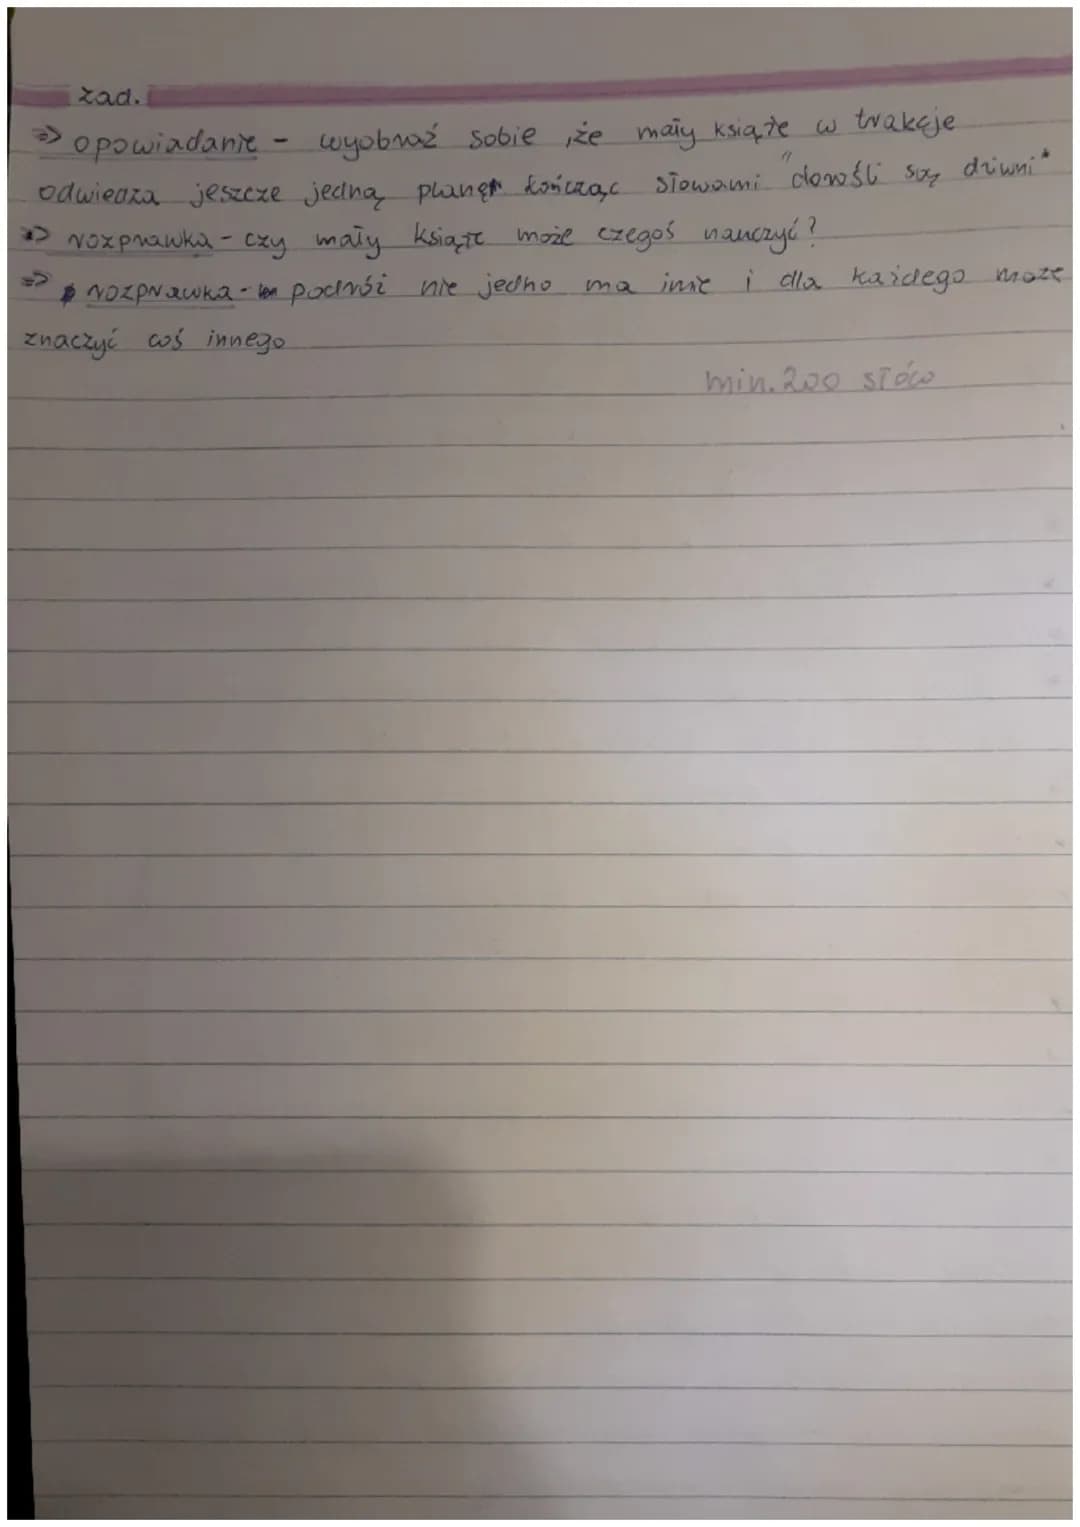 zad.
=> opowiadanie - wyobraź sobie, że mały książe w trakcje
odwiedza jeszcze jedną planęt kończąc słowami "dorośli są dziwni"
=> rozprawka - czy mały książe może czegoś nauczyć?
=> rozprawka - podróż nie jedno ma imie i dla każdego może
znaczyć coś innego
min. 200 słów